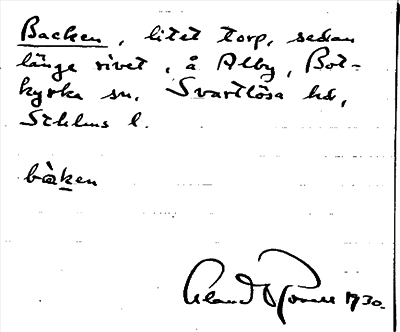 Backen, litet torp, sedan
länge rivet, å Alby, Bot-
kyrka sn. Svartlösa hd,
Sthlms l.
bàken
1930.